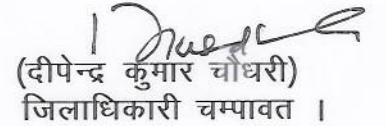 (दीपेन्द्र कुमार चौधरी)
जिलाधिकारी चम्पावत ।